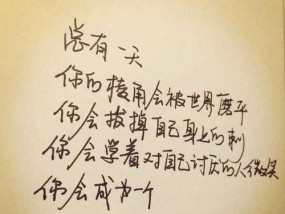 总有一天
你的棱角会被世界磨平
你会拔掉自己身上的刺
你会学着对自己讨厌的人微笑
你会成为一个